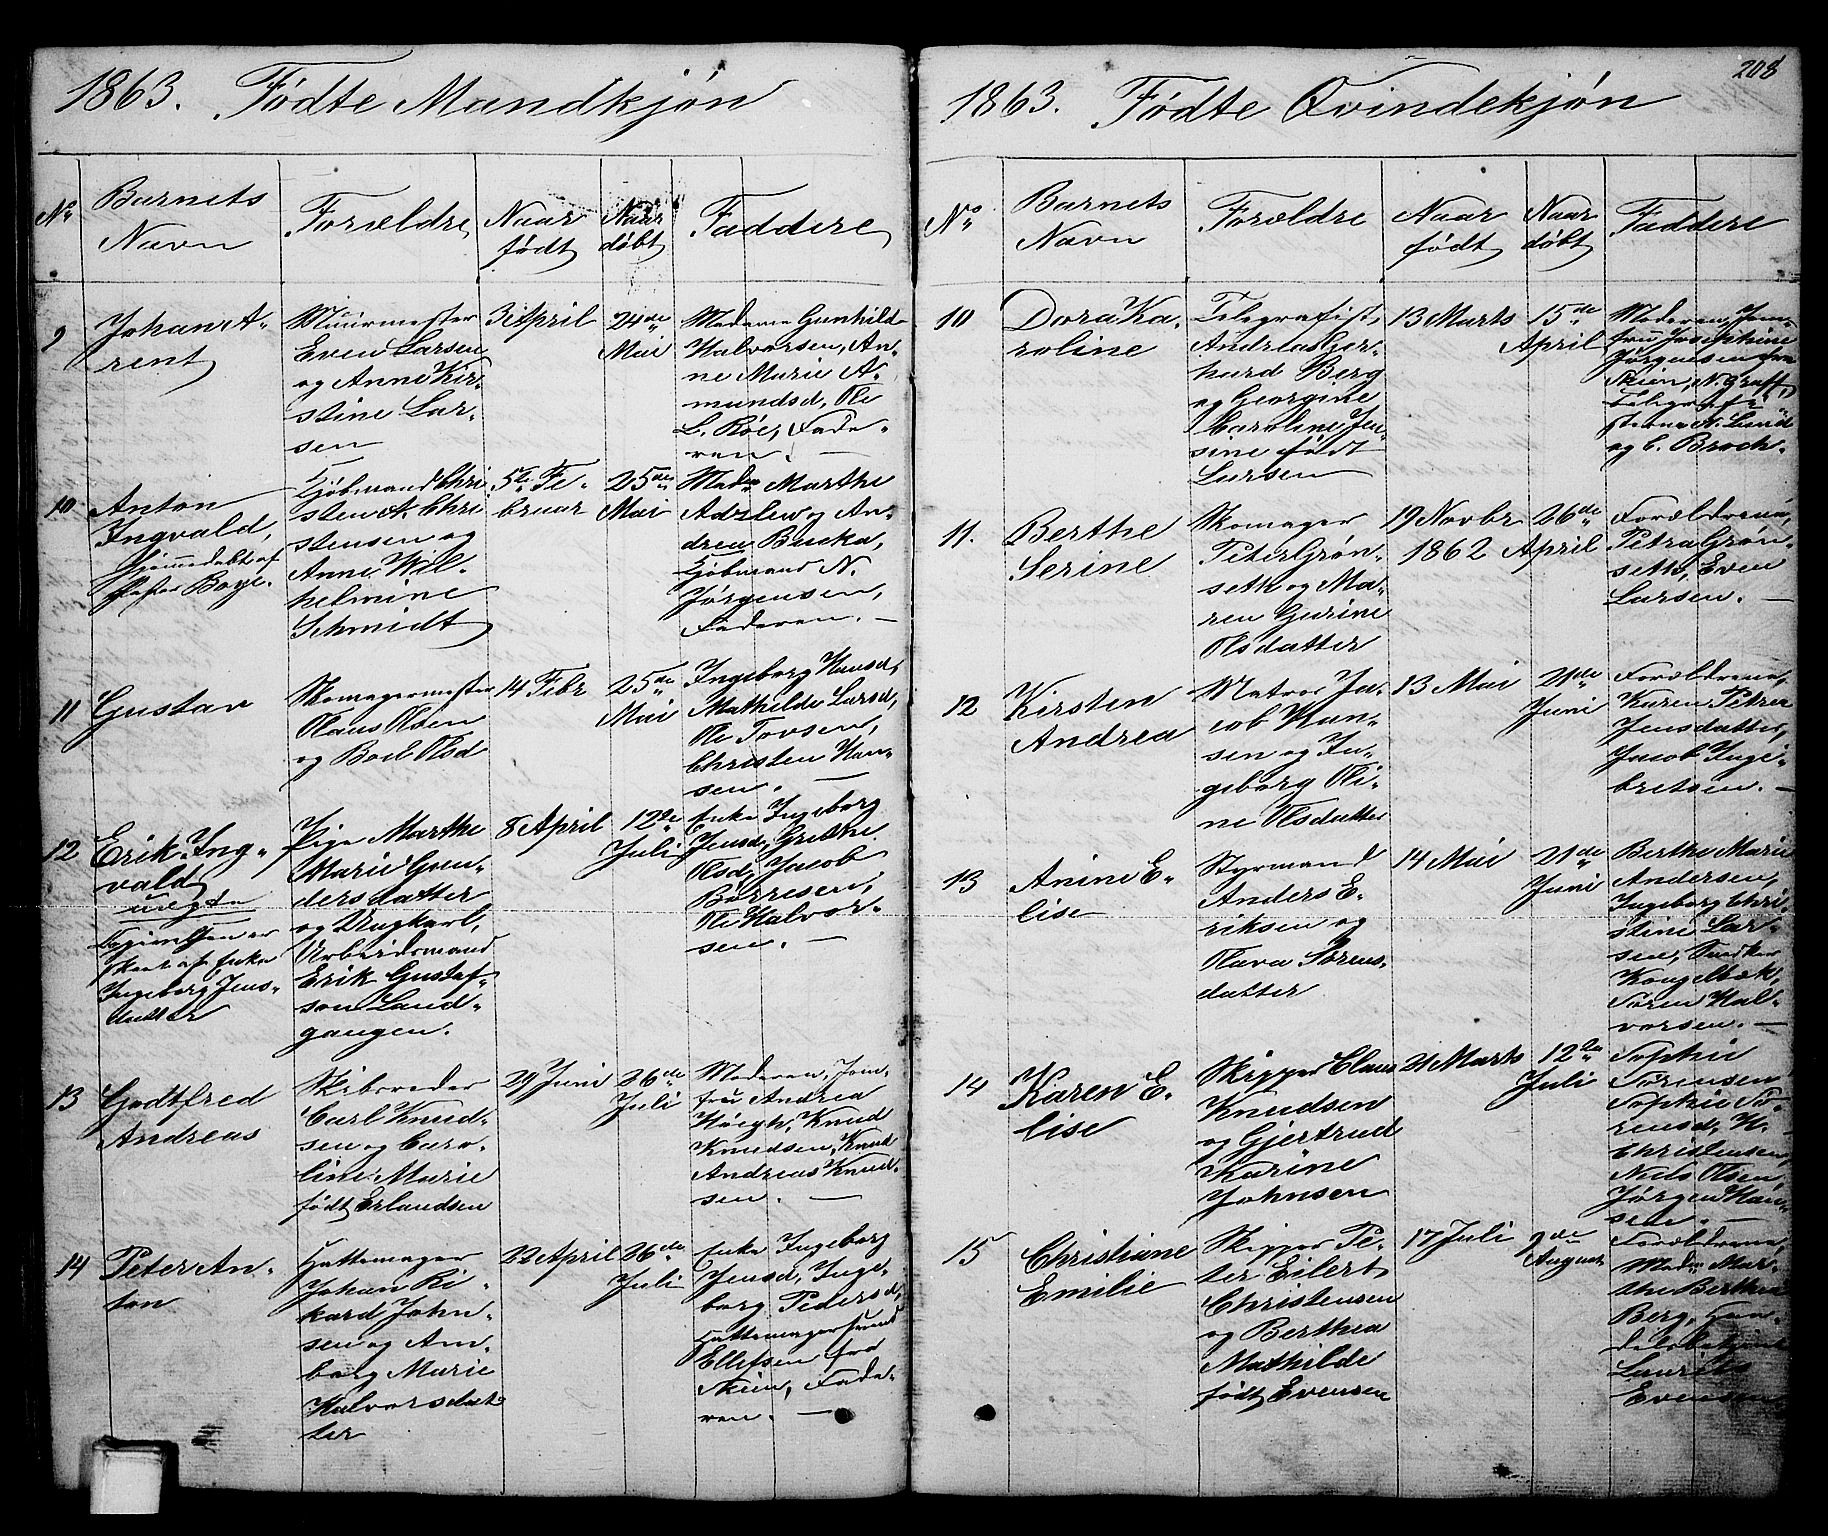 1863. Födte Mandkjön
No
Barnets
Navn
Forældre
Naar
födt
Naar
döbt
Faddere
9
Johan A-
rent
Muurmester
Even Larsen
og Anne Kir-
stine Lar-
sen
3 April
24de
Mai
Madame Gunhild
Halvorsen, An-
ne Marie A-
mundsd, Ole
L. Röer, Fade-
ren. —
10
Anton
Ingvald,
Hjemmedöbt af
Pastor Boye
Kjöbmand Chri
sten A. Chri
stensen og
Anne Wil-
helmine
Schmidt
5te Fe-
bruar
25de
Mai
Madm Marthe
Adslew, An-
drea Bucka,
Kjöbmand N.
Jörgensen,
Faderen. —
11
Gustav
Skomagermester
Olaus Olsen
og Boel Olsd
14 Febr
25de
Mai
Ingeborg Hansd,
Mathilde Larsd,
Ole Tovsen,
Christen Han-
sen. —
12
Erik Ing-
vald
uægte
skeet af Enke
Ingeborg Jens-
datter
Pige Marthe
Marie Gun-
dersdatter
og Ungkarl,
Arbeidsmand
Erik Gustaf-
son Land-
gangen.
8 April
12te
Juli
Enke Ingeborg
Jensd, Grethe
Olsd, Jacob
Börresen,
Ole Halvor-
sen. —
13
Godtfred
Andreas
Skibsreder
Carl Knud-
sen og Caro-
line Marie
födt Erlandsen
29 Juni
26de
Juli
Moderen, Jom-
fru Andrea
Höegh, Knud
Knudsen, Knud
Andreas Knud-
sen. —
14
Peter An-
ton
Hattemager
Johan Ri-
kard John-
sen og Am-
borg Marie
Halvorsdat-
ter
22 April
26de
Juli
Enke Ingeborg
Jensd, Inge-
borg Pedersd,
Hattemagersvend
Ellefsen fra
Skien, Fade-
ren. —
208
1863. Födte Qvindekjön
No
Barnets
Navn
Forældre
Naar
födt
Naar
döbt
Faddere
10
Dora Ka-
roline
Telegrafist,
Andreas Ger-
hard Berg
og Georgine
Caroline Jen-
sine födt
Larsen
13 Marts
15de
April
Moderen, Jom-
fru Josephine
Jörgensen fra
Skien, N. Graff,
Telegrafi-
sterne N. Lund
og C. Broch.
11.
Berthe
Serine
Skomager
Peter Grön-
seth og Ma-
ren Gurine
Olsdatter
19 Novbr
1862
26de
April
Forældrene,
Petra Grön-
seth, Even
Larsen. —
12
Kirsten
Andrea
Matros Ja-
cob Han-
sen og In-
geborg Oli-
ne Olsdatter
13 Mai
21de
Juni
Forældrene,
Karen Petrea
Jensdatter,
Jacob Inge-
bretsen. —
13
Anine E-
lise
Styrmand
Anders E-
riksen og
Olava Sörens-
datter
14 Mai
21de
Juni
Berthe Marie
Andersen,
Ingeborg Chri-
stine Lar-
sen, Snedker
Kongelbæk,
Sören Hal-
vorsen. —
14
Karen E-
lise
Skipper Claus
Knudsen
og Gjertrud
Karine
Johnsen
21 Marts
12te
Juli
Sophie
Sörensen
Sophie Sö-
rensd, H.
Christensen,
Niels Olsen,
Jörgen Han-
sen. —
15
Christiane
Emilie
Skipper Pe-
ter Eilert
Christensen
og Berthea
Mathilde
födt Evensen
17 Juli
9de
August
Forældrene,
Madm Mar-
the Berthea
Berg, Han-
delsbetjent
Lauritz
Evensen